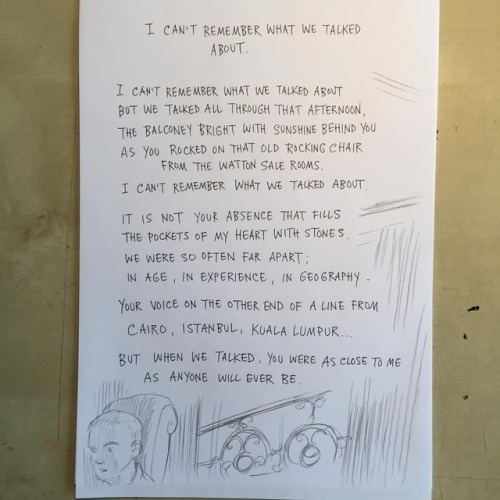 I CAN'T REMEMBER WHAT WE TALKED
ABOUT.
I CAN'T REMEMBER WHAT WE TALKED ABOUT
BUT WE TALKED ALL THROUGH THAT AFTERNOON,
THE BALCONEY BRIGHT WITH SUNSHINE BEHIND YOU
AS YOU ROCKED ON THAT OLD ROCKING CHAIR
FROM THE WATTON SALE ROOMS.
I CAN'T REMEMBER WHAT WE TALKED ABOUT.
IT IS NOT YOUR ABSENCE THAT FILLS
THE POCKETS OF MY HEART WITH STONES.
WE WERE SO OFTEN FAR APART;
IN AGE, IN EXPERIENCE, IN GEOGRAPHY -
YOUR VOICE ON THE OTHER END OF A LINE FROM
CAIRO, ISTANBUL, KUALA LUMPUR...
BUT WHEN WE TALKED, YOU WERE AS CLOSE TO ME
AS ANYONE WILL EVER BE.